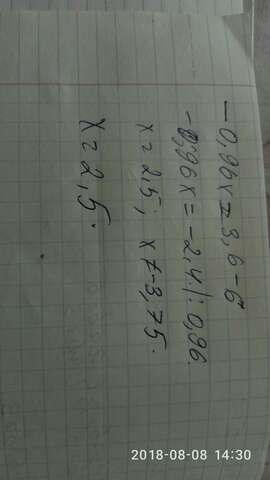 -0,96x = 3,6 - 6
-0,96x = -2,4. |: 0,96.
x = 2,5; x ≠ -3,75.
x = 2,5.
2018-08-08 14:30